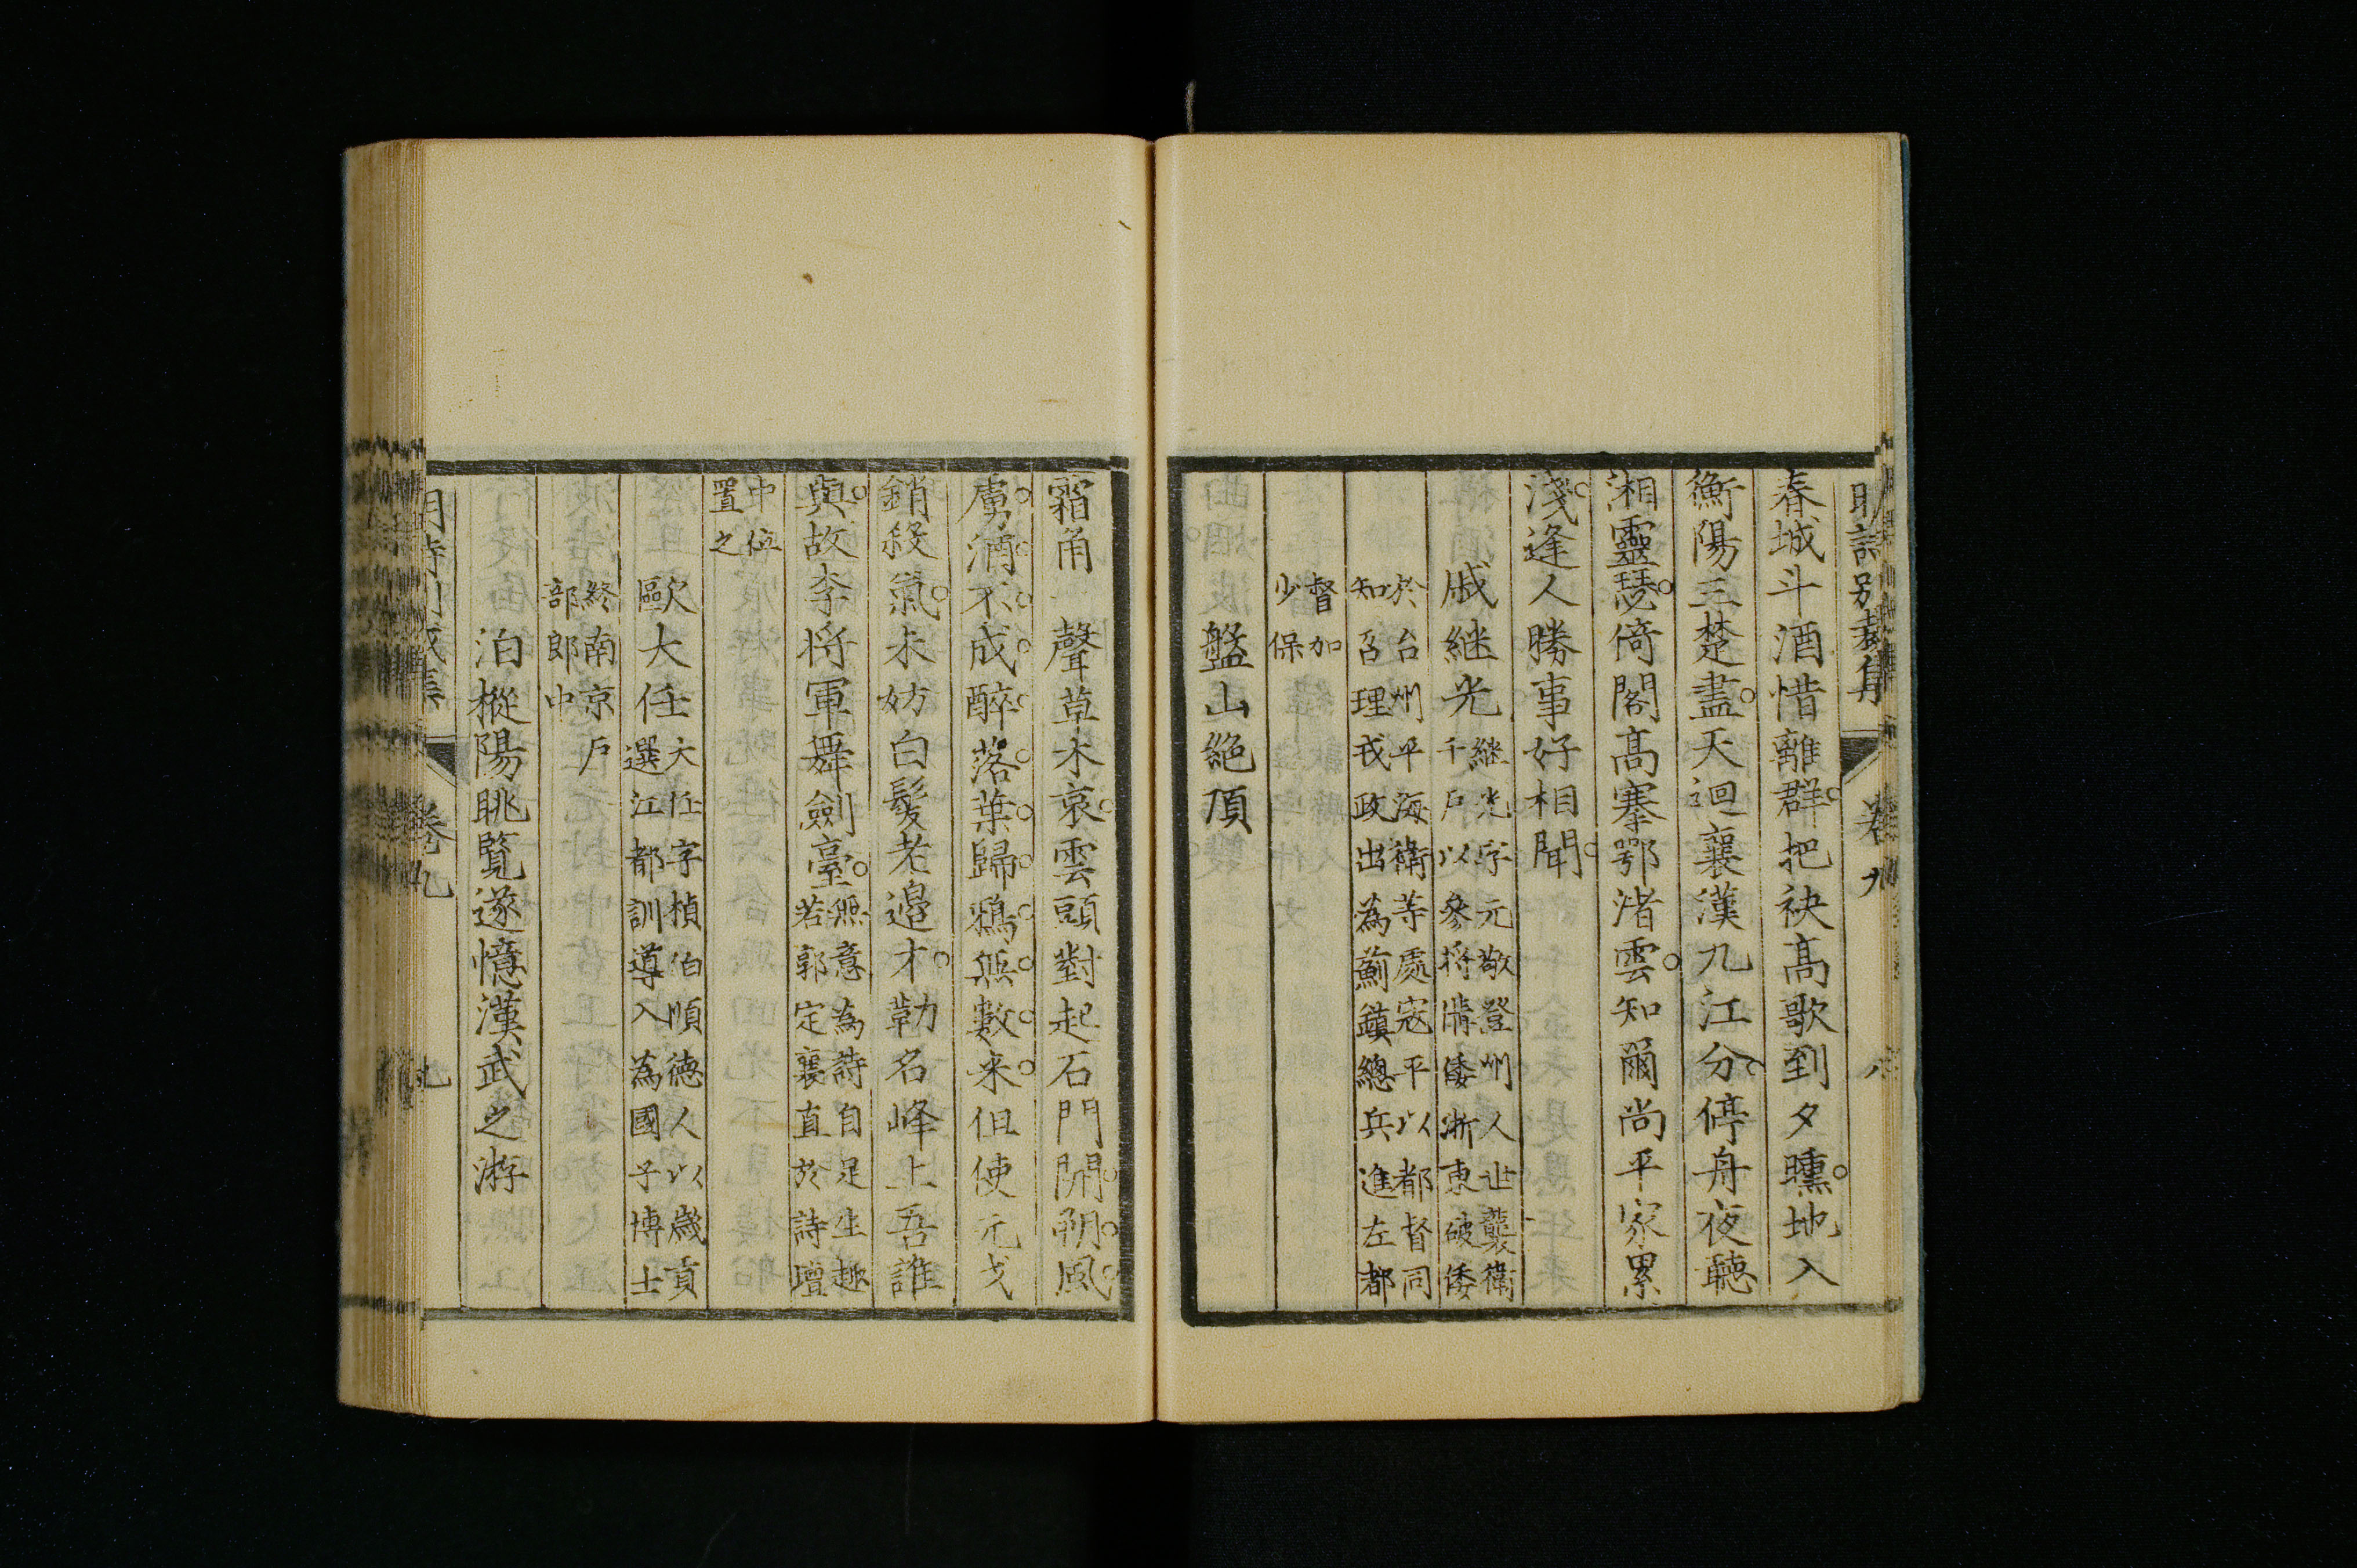 明詩別裁集 卷九 八
春城斗酒惜離群把袂高歌到夕曛地入
衡陽三楚盡天迴襄漢九江分停舟夜聽
湘靈瑟倚閣高搴鄂渚雲知爾尚平家累
淺逢人勝事好相聞
戚継光
継光字元敬登州人世襲衛
千戶以參將備倭浙東破倭
於台州平海衛等處寇平以都督同
知召理戎政出為薊鎮總兵進左都
督加
少保
盤山絶頂
霜角一聲草木哀雲頭對起石門開朔風
虜酒不成醉落葉歸鴉無數来但使元戈
銷殺氣未妨白髮老邉才勒名峰上吾誰
與故李将軍舞劍臺
無意為詩自足生趣
若郭定襄直於詩壇
中位
置之
歐大任
大任字楨伯順徳人以歲貢
選江都訓導入為國子博士
終南京戶
部郎中
泊樅陽眺覧遂憶漢武之游
明詩別裁集 卷九 九